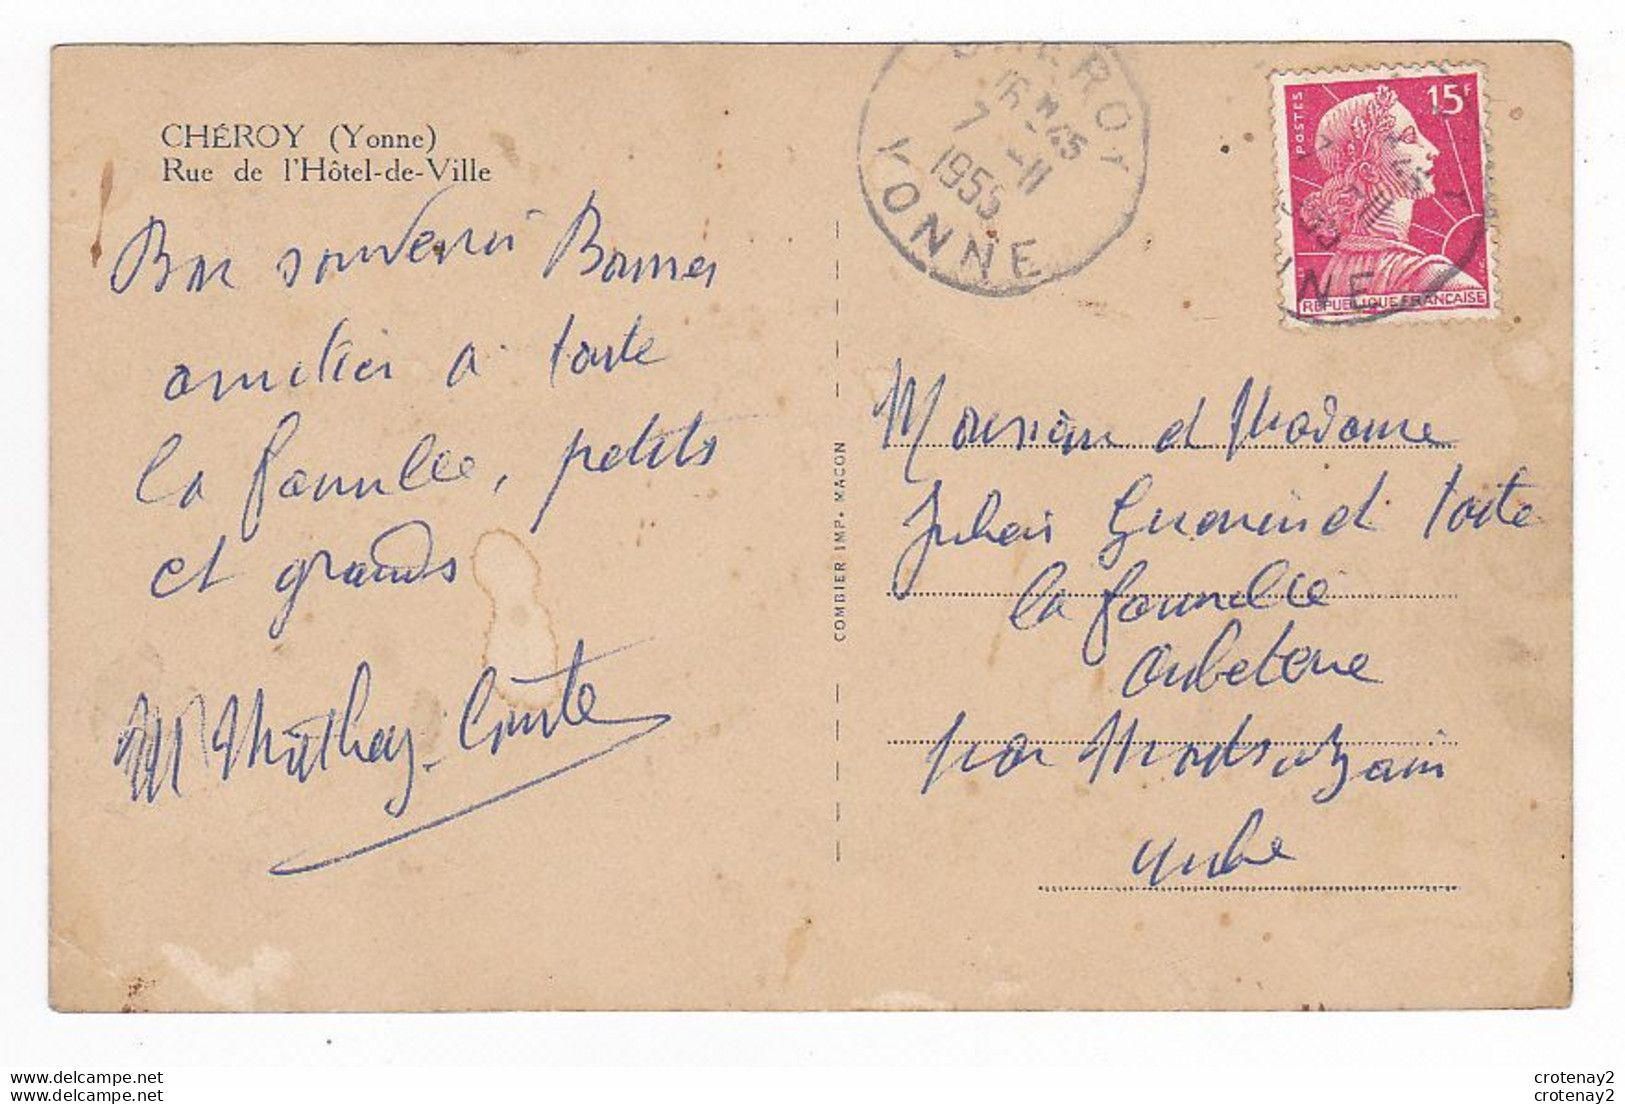 CHÉROY (Yonne)
Rue de l'Hôtel-de-Ville
Bon souvenir Bonnes
amitiés à toute
la famille, petits
et grands
COMBIER IMP. MACON
CHEROY
16 H 45
7 -11
1955
YONNE
POSTES
15F
REPUBLIQUE FRANÇAISE
Monsieur et Madame
Julien et toute
la famille
par
Aube
www.delcampe.net
www.delcampe.net
crotenay2
crotenay2